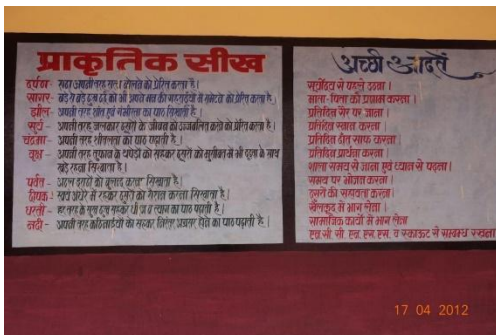 प्राकृतिक सीख
दर्पण - सदा अपनी तरह सत्य बोलने को प्रेरित करता है।
सागर - बड़े से बड़े दुःख दर्द को भी अपने मन की गहराईयों में समेटने को प्रेरित करता है।
झील - अपनी तरह शांत एवं गंभीरता का पाठ सिखाती है।
सूर्य - अपनी तरह जलकर दूसरों के जीवन को उज्जवलित करने को प्रेरित करता है।
चंद्रमा - अपनी तरह शीतलता का पाठ पढ़ाती है।
वृक्ष - अपनी तरह तूफान के थपेड़ों को सहकर दूसरों को मुसीबत में भी दृढ़ता के साथ
खड़े रहना सिखाता है।
पर्वत - अटल इरादों को बुलंद करना सिखाता है।
दीपक - स्वयं अंधेरे में रहकर दूसरों को रोशन करना सिखाता है।
धरती - हर तरह के दुःख सहकर भी त्याग का पाठ पढ़ाती है।
नदी - अपनी तरह कठिनाईयों को सहकर निरंतर अग्रसर होने का पाठ पढ़ाती है।
अच्छी आदतें
सूर्योदय से पहले उठना।
माता-पिता को प्रणाम करना।
प्रतिदिन सैर पर जाना।
प्रतिदिन स्नान करना।
प्रतिदिन दाँत साफ करना।
प्रतिदिन प्रार्थना करना।
शाला समय से जाना एवं ध्यान से पढ़ना।
समय पर भोजन करना।
दूसरों की सहायता करना।
खेलकूद में भाग लेना।
सामाजिक कार्यों में भाग लेना
एन.सी.सी. एन.एस.एस. व स्काऊट से सम्बन्ध रखना
17 04 2012